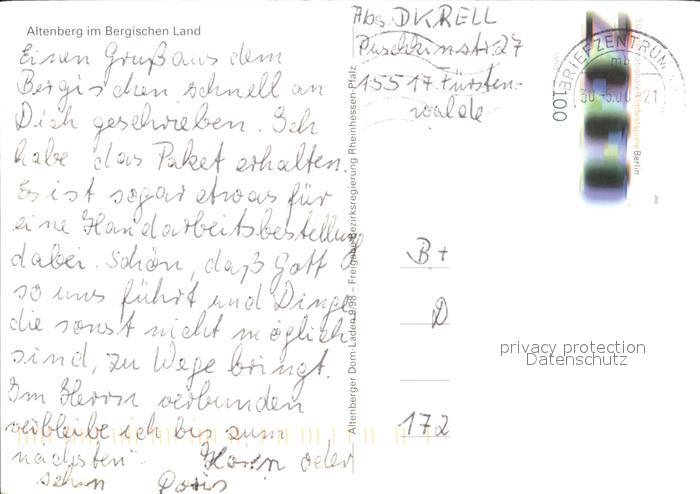 Altenberg im Bergischen Land
Einen Gruß aus dem
Bergischen schnell an
Dich geschrieben. Ich
habe das Paket erhalten.
Es ist sogar etwas für
eine Handarbeitsbestellung
dabei. Schön, daß Gott
so uns führt und Dinge
die sonst nicht möglich
sind, zu Wege bringt.
Im Herrn verbunden
verbleibe ich bis zum
nächsten" Hören oder
sehen Doris
Altenberger Dom-Laden 9/98 – Freigabe Bezirksregierung Rheinhessen-Pfalz
Abs. D. KRELL
Puschkinstr. 27
15517 Fürsten-
walde
B +
D
172
BRIEFZENTRUM
mb
-21
100
Berlin
privacy protection
Datenschutz